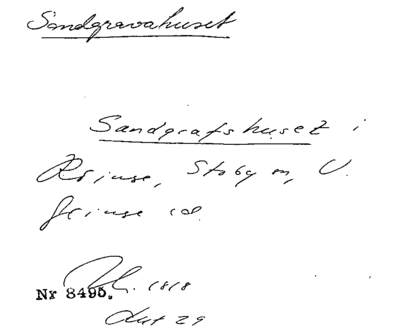 Sandgravahuset
Sandgrafshuset i
Röinge, Stoby sn, V.
Göinge hd.
1818
Nr 8495.
Akt 29